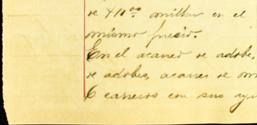 de $10.00 millar en el
mismo precio.
En el acarreo de adobe,
de adobes, acarreo de
6 carreros con sus